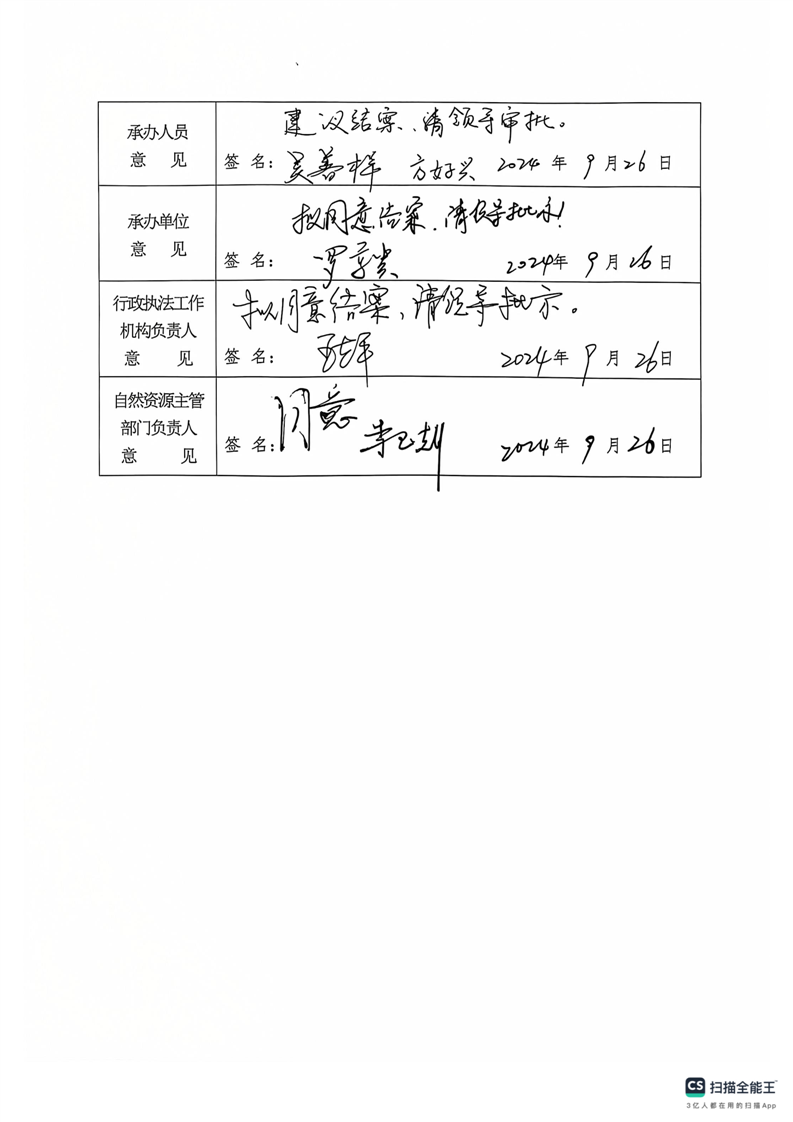 承办人员
意 见
建议结案,请领导审批。
签 名: 吴善样 方好兴 2024 年 9 月 26 日
承办单位
意 见
拟同意结案,请领导批示!
签 名: 罗 2024年 9 月 26 日
行政执法工作
机构负责人
意 见
拟同意结案,请领导批示。
签 名: 2024年 9 月 26日
自然资源主管
部门负责人
意 见
同意
签 名: 李 2024年 9 月 26日
CS 扫描全能王
3亿人都在用的扫描App